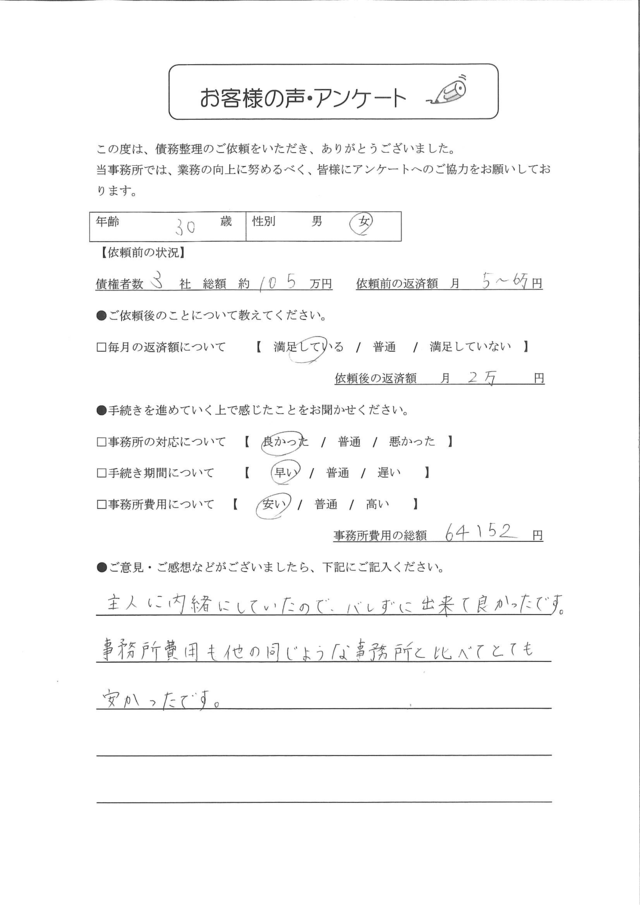 お客様の声・アンケート
この度は、債務整理のご依頼をいただき、ありがとうございました。
当事務所では、業務の向上に努めるべく、皆様にアンケートへのご協力をお願いしてお
ります。
年齢 30 歳 性別 男 女
【依頼前の状況】
債権者数 3 社 総額 約 105 万円 依頼前の返済額 月 5〜6万 円
●ご依頼後のことについて教えてください。
□毎月の返済額について 【 満足している / 普通 / 満足していない 】
依頼後の返済額 月 2万 円
●手続きを進めていく上で感じたことをお聞かせください。
□事務所の対応について 【 良かった / 普通 / 悪かった 】
□手続き期間について 【 早い / 普通 / 遅い 】
□事務所費用について 【 安い / 普通 / 高い 】
事務所費用の総額 64152 円
●ご意見・ご感想などがございましたら、下記にご記入ください。
主人に内緒にしていたので、バレずに出来て良かったです。
事務所費用も他の同じような事務所と比べてとても
安かったです。